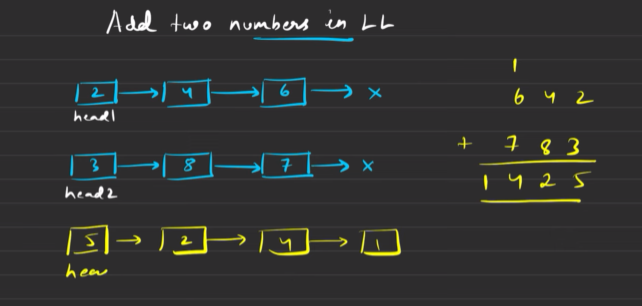 Add two numbers in LL
2 → 4 → 6 → x
head1
3 → 8 → 7 → x
head2
5 → 2 → 4 → 1
hea
1
6 4 2
+ 7 8 3
1 4 2 5